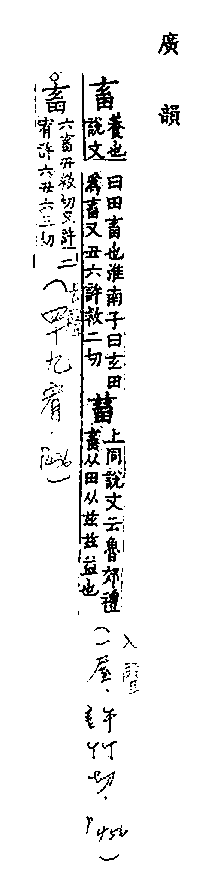 廣韻
畜
養也
說文
曰田畜也淮南子曰玄田
爲畜又丑六許救二切
𤲸
上同說文云魯郊禮
畜从田从茲茲益也
入聲
(一屋.許竹切.P456)
畜
六畜丑救切又許
宥許六丑六三切
二
去聲
(四十九宥.P436)